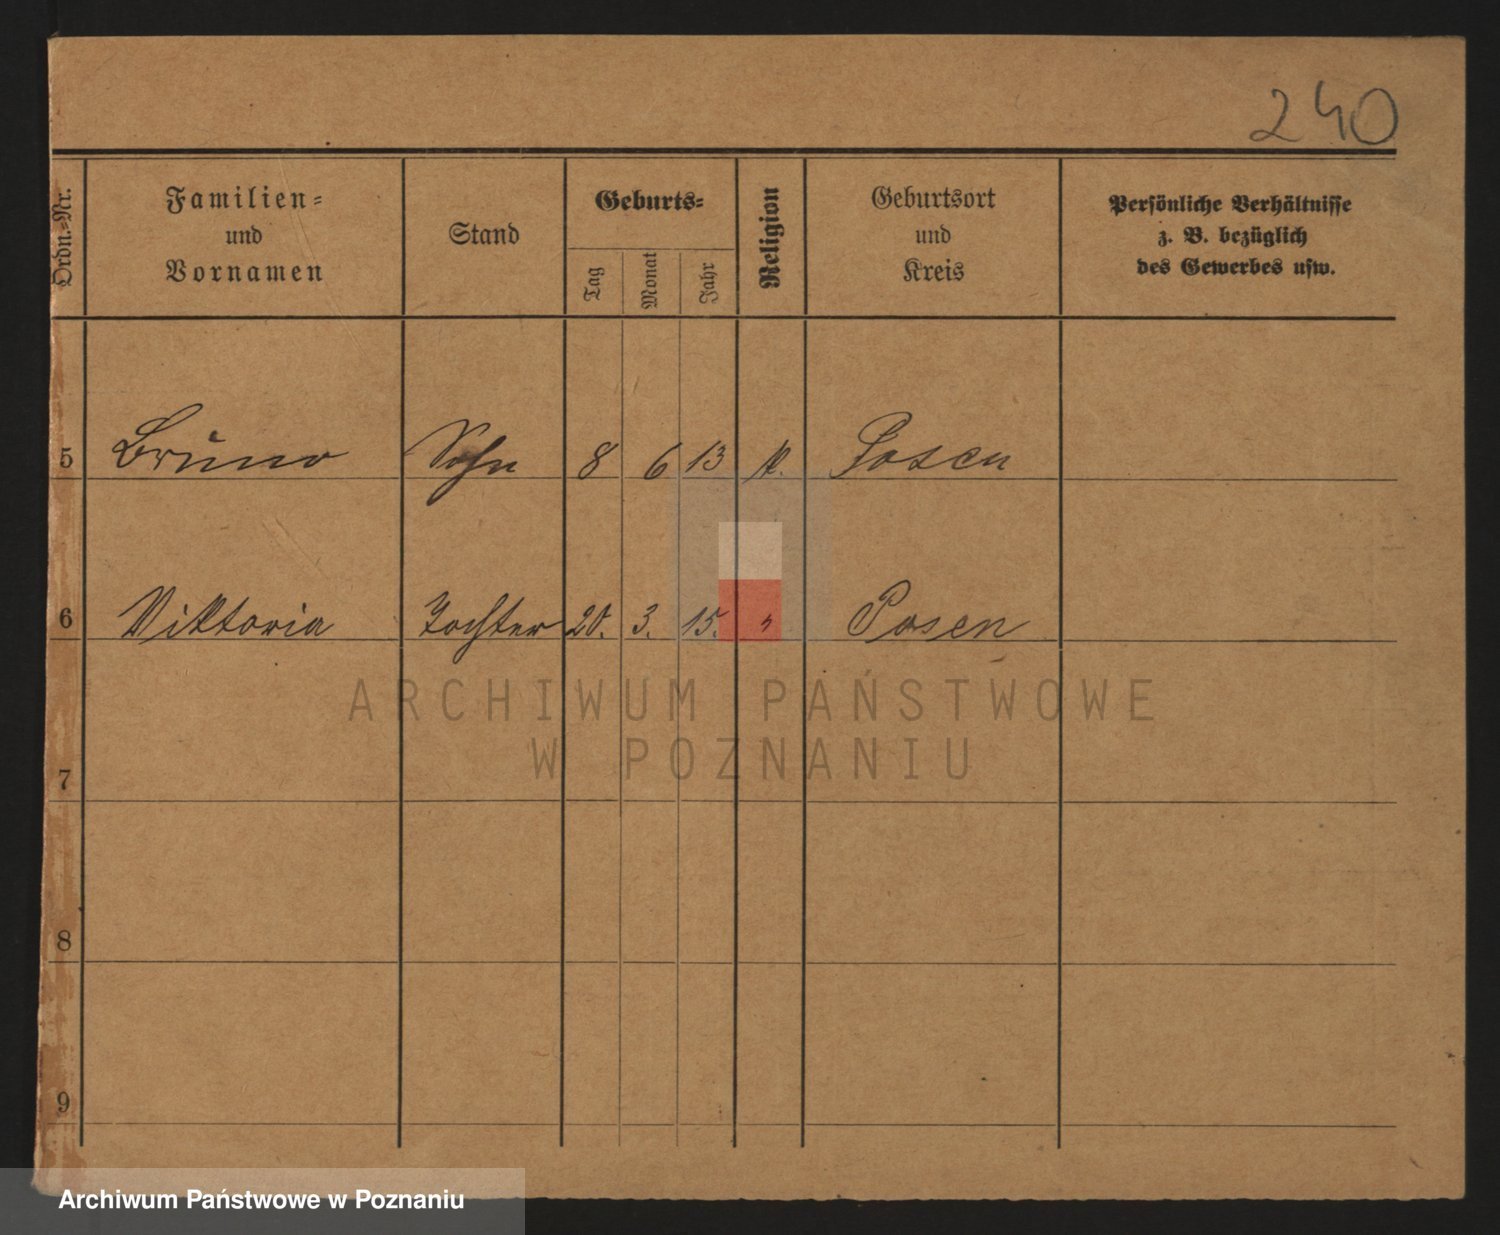 240
Ordn.=Nr.
Familien=
und
Vornamen
Stand
Geburts=
Tag
Monat
Jahr
Religion
Geburtsort
und
Kreis
Persönliche Verhältnisse
z. B. bezüglich
des Gewerbes usw.
5 Bruno Sohn 8 6 13 k. Posen
6 Viktoria Tochter 20. 3. 15. " Posen
7
8
9
ARCHIWUM PAŃSTWOWE
W POZNANIU
Archiwum Państwowe w Poznaniu